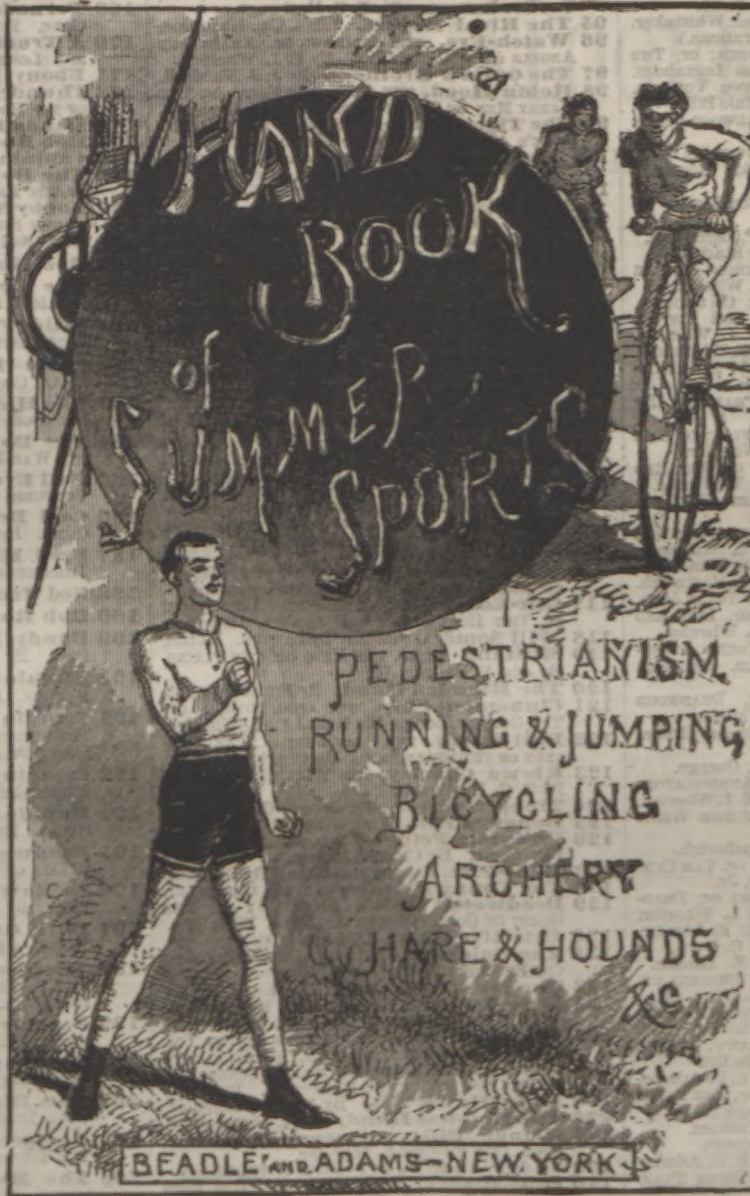 HAND
BOOK
of
SUMMER
SPORTS
PEDESTRIANISM
RUNNING & JUMPING
BICYCLING
ARCHERY
HARE & HOUNDS
&c.
BEADLE AND ADAMS-NEW YORK.